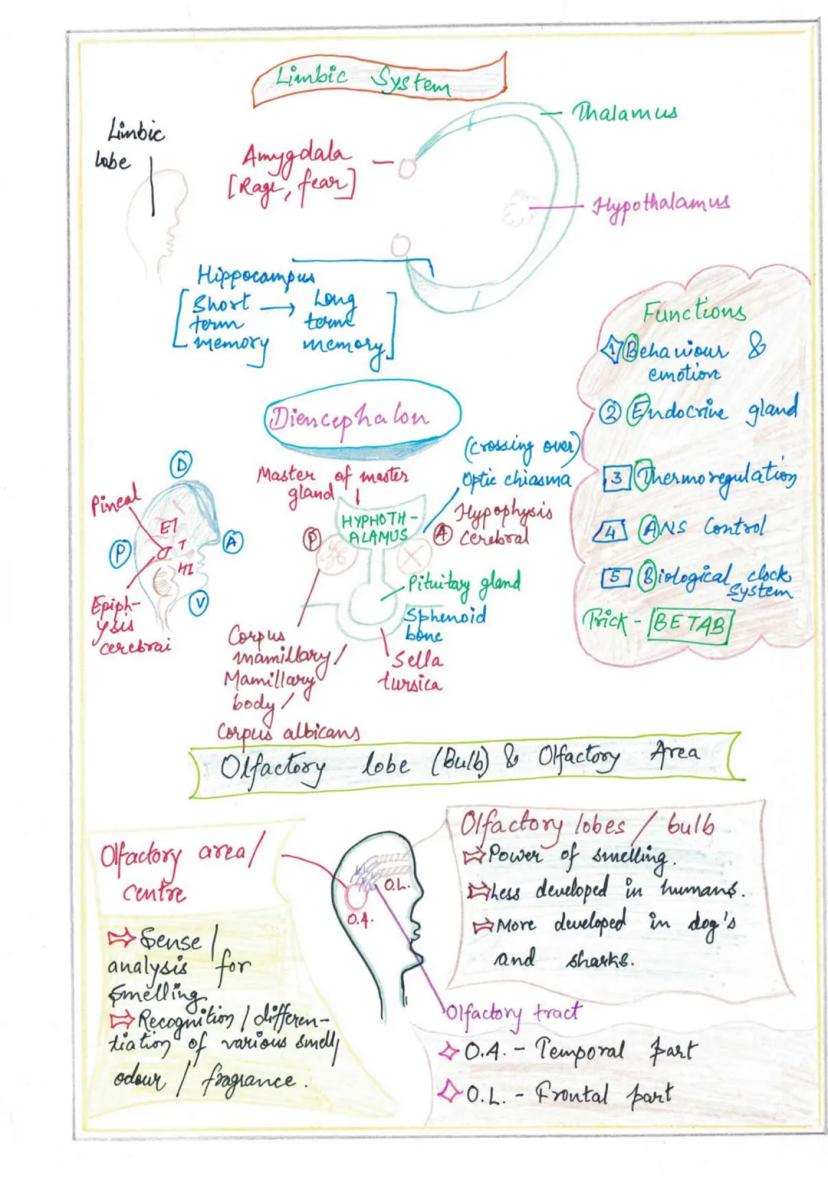 Limbic System
Limbic
lobe
Amygdala
[Rage, fear]
Thalamus
Hypothalamus
Hippocampus
[Short → Long
term terme
memory memory]
Functions
1 Behaviour &
emotion
2 Endocrine gland
3 Thermoregulation
4 ANS Control
5 Biological clock
system
Trick - BETAB
Diencephalon
Master of master
gland
(Crossing over)
Optic chiasma
HYPHOTH-
ALAMUS
P
A
Hypophysis
cerebral
Pituitary gland
Sphenoid
bone
Sella
tursica
Corpus
mamillary/
Mamillary
body/
Corpus albicans
D
Pineal
P
A
V
ET
T
HT
Epiph-
ysis
cerebrai
Olfactory lobe (Bulb) & Olfactory Area
Olfactory area/
centre
⇨ Sense/
analysis for
smelling
⇨ Recognition/differen-
tiation of various smell/
odour/fragrance.
O.L.
O.A.
Olfactory lobes/bulb
⇨ Power of smelling.
⇨ Less developed in humans.
⇨ More developed in dog's
and sharks.
Olfactory tract
✧ O.A. - Temporal part
✧ O.L. - Frontal part